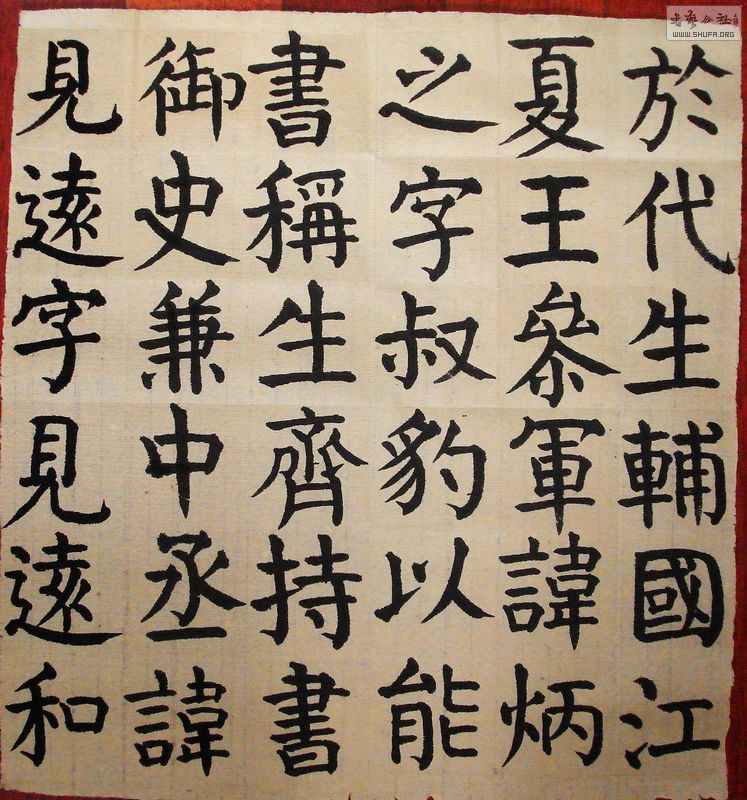 於代生輔國江
夏王参軍諱炳
之字叔豹以能
書稱生齊持書
御史兼中丞諱
見遠字見遠和
WWW.SHUFA.ORG